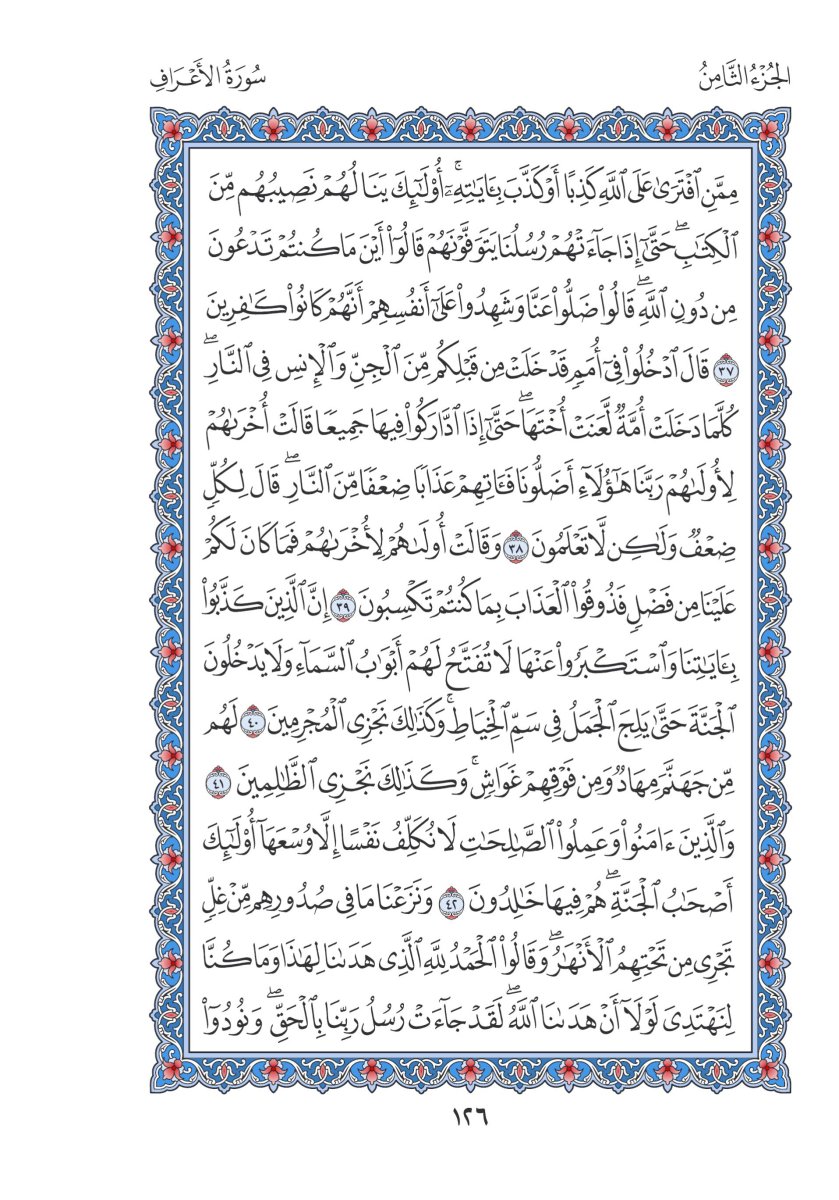 الجُزْءُ الثَّامِنُ
سُورَةُ الأَعْرَافِ
مِمَّنِ ٱفْتَرَىٰ عَلَى ٱللَّهِ كَذِبًا أَوْ كَذَّبَ بِـَٔايَٰتِهِۦٓۚ أُوْلَٰٓئِكَ يَنَالُهُمْ نَصِيبُهُم مِّنَ
ٱلْكِتَٰبِۖ حَتَّىٰٓ إِذَا جَآءَتْهُمْ رُسُلُنَا يَتَوَفَّوْنَهُمْ قَالُوٓاْ أَيْنَ مَا كُنتُمْ تَدْعُونَ
مِن دُونِ ٱللَّهِۖ قَالُواْ ضَلُّواْ عَنَّا وَشَهِدُواْ عَلَىٰٓ أَنفُسِهِمْ أَنَّهُمْ كَانُواْ كَٰفِرِينَ
٣٧ قَالَ ٱدْخُلُواْ فِىٓ أُمَمٍ قَدْ خَلَتْ مِن قَبْلِكُم مِّنَ ٱلْجِنِّ وَٱلْإِنسِ فِى ٱلنَّارِۖ
كُلَّمَا دَخَلَتْ أُمَّةٌ لَّعَنَتْ أُخْتَهَاۖ حَتَّىٰٓ إِذَا ٱدَّارَكُواْ فِيهَا جَمِيعًا قَالَتْ أُخْرَىٰهُمْ
لِأُولَىٰهُمْ رَبَّنَا هَٰٓؤُلَآءِ أَضَلُّونَا فَـَٔاتِهِمْ عَذَابًا ضِعْفًا مِّنَ ٱلنَّارِۖ قَالَ لِكُلٍّ
ضِعْفٌ وَلَٰكِن لَّا تَعْلَمُونَ ٣٨ وَقَالَتْ أُولَىٰهُمْ لِأُخْرَىٰهُمْ فَمَا كَانَ لَكُمْ
عَلَيْنَا مِن فَضْلٍ فَذُوقُواْ ٱلْعَذَابَ بِمَا كُنتُمْ تَكْسِبُونَ ٣٩ إِنَّ ٱلَّذِينَ كَذَّبُواْ
بِـَٔايَٰتِنَا وَٱسْتَكْبَرُواْ عَنْهَا لَا تُفَتَّحُ لَهُمْ أَبْوَٰبُ ٱلسَّمَآءِ وَلَا يَدْخُلُونَ
ٱلْجَنَّةَ حَتَّىٰ يَلِجَ ٱلْجَمَلُ فِى سَمِّ ٱلْخِيَاطِۚ وَكَذَٰلِكَ نَجْزِى ٱلْمُجْرِمِينَ ٤٠ لَهُم
مِّن جَهَنَّمَ مِهَادٌ وَمِن فَوْقِهِمْ غَوَاشٍۚ وَكَذَٰلِكَ نَجْزِى ٱلظَّٰلِمِينَ ٤١
وَٱلَّذِينَ ءَامَنُواْ وَعَمِلُواْ ٱلصَّٰلِحَٰتِ لَا نُكَلِّفُ نَفْسًا إِلَّا وُسْعَهَآ أُوْلَٰٓئِكَ
أَصْحَٰبُ ٱلْجَنَّةِۖ هُمْ فِيهَا خَٰلِدُونَ ٤٢ وَنَزَعْنَا مَا فِى صُدُورِهِم مِّنْ غِلٍّ
تَجْرِى مِن تَحْتِهِمُ ٱلْأَنْهَٰرُۖ وَقَالُواْ ٱلْحَمْدُ لِلَّهِ ٱلَّذِى هَدَىٰنَا لِهَٰذَا وَمَا كُنَّا
لِنَهْتَدِىَ لَوْلَآ أَنْ هَدَىٰنَا ٱللَّهُۖ لَقَدْ جَآءَتْ رُسُلُ رَبِّنَا بِٱلْحَقِّۖ وَنُودُوٓاْ
١٢٦